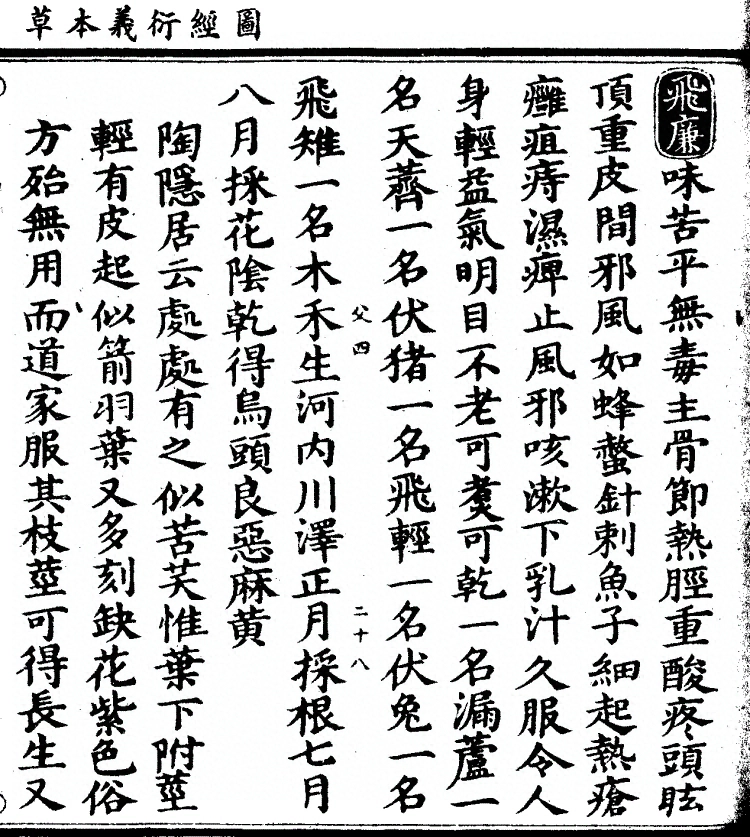 圖經衍義本草
飛廉味苦平無毒主骨節熱脛重酸疼頭眩
頂重皮間邪風如蜂螫針刺魚子細起熱瘡
癰疽痔濕痺止風邪咳漱下乳汁久服令人
身輕益氣明目不老可煑可乾一名漏蘆一
名天薺一名伏猪一名飛輕一名伏兔一名
父四
二十八
飛雉一名木禾生河内川澤正月採根七月
八月採花陰乾得烏頭良惡麻黄
陶隱居云處處有之似苦芺惟葉下附莖
輕有皮起似箭羽葉又多刻缺花紫色俗
方殆無用而道家服其枝莖可得長生又